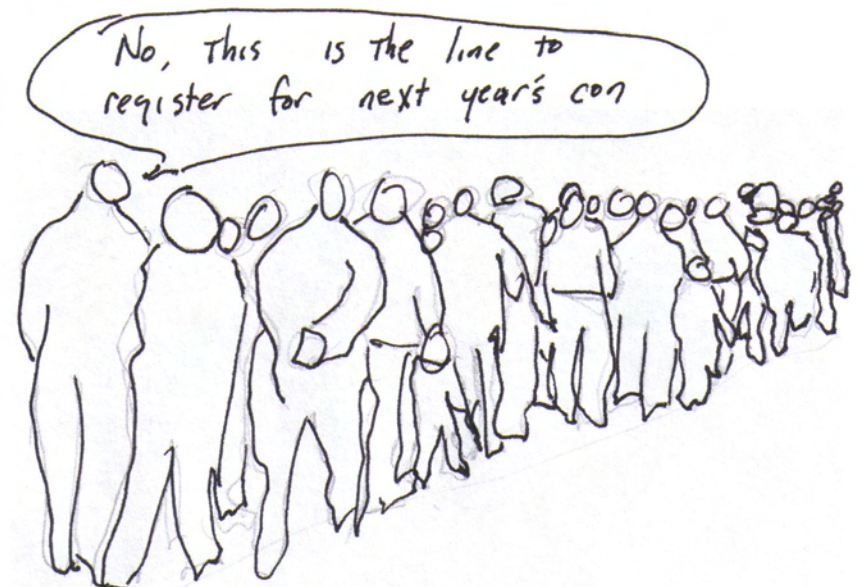 No, This is The line to
register for next year's con